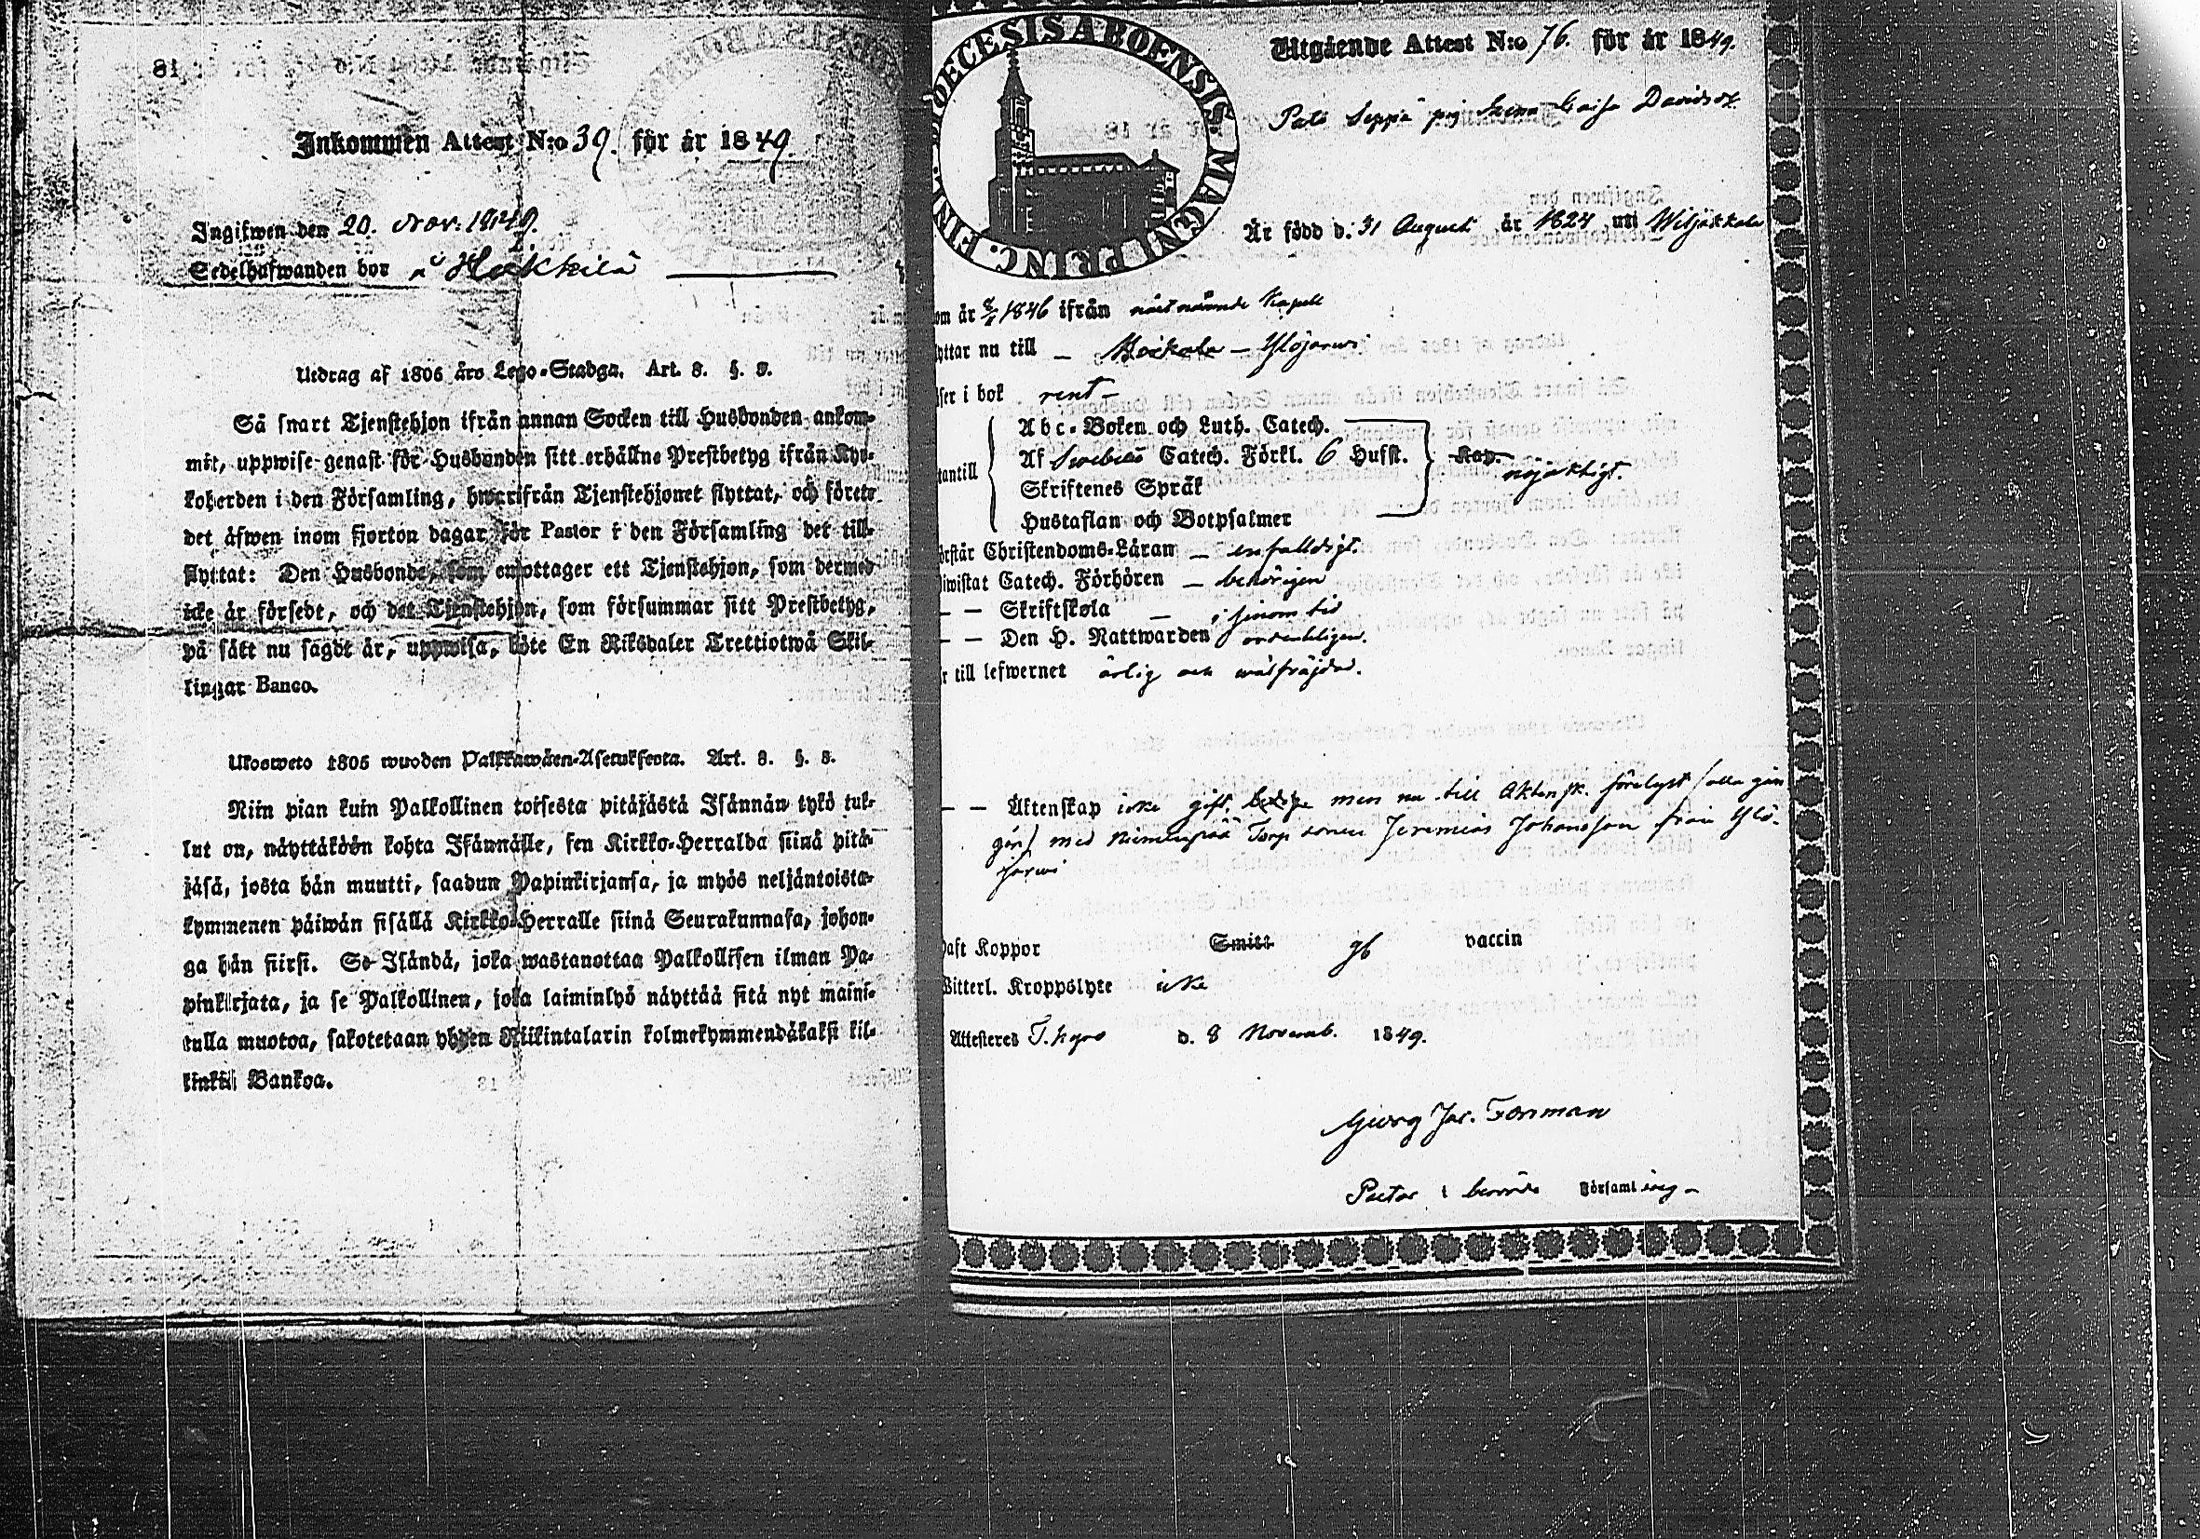 Inkommen Attest N:o 39. för år 1849.
Ingifwen den 20. Nov. 1849.
Sedelhafwanden bor å Hakkila
Utdrag af 1805 års Lego-Stadga. Art. 8. §. 8.
Så snart Tjenstehjon ifrån annan Socken till Husbonden ankom-
mit, uppwise genast för Husbonden sitt erhållne Prestbetyg ifrån Kyr-
koherden i den Församling, hwarifrån Tjenstehjonet flyttat, och förete
det äfwen inom fjorton dagar för Pastor i den Församling det till-
flyttat: Den Husbonde, som emottager ett Tjenstehjon, som dermed
icke är försedt, och det Tjenstehjon, som försummar sitt Prestbetyg,
på sätt nu sagdt är, uppwisa, böte En Riksdaler Trettiotwå Skil-
lingar Banco.
Ulosweto 1805 wuoden Palkkawäen-Asetuksesta. Art. 8. §. 8.
Niin pian kuin Palkollinen toisesta pitäjästä Isännän tykö tul-
lut on, näyttäköön kohta Isännälle, sen Kirkko-Herralda siinä pitä-
jäsä, josta hän muutti, saadun Papinkirjansa, ja myös neljäntoista-
kymmenen päiwän sisällä Kirkko-Herralle siinä Seurakunnasa, johon-
ga hän siirsi. Se Isändä, joka wastanottaa Palkollisen ilman Pa-
pinkirjata, ja se Palkollinen, joka laiminlyö näyttää sitä nyt maini-
tulla muotoa, sakotetaan yhden Riikintalarin kolmekymmendäkaksi kil-
linkiä Bankoa.
DIOECESIS ABOENSIS. MAGNI PRINC. FINL.
Utgående Attest N:o 76. för år 1849.
Seppä pig Caisa Davidsdr
Är född d. 31 Augusti år 1824 uti Wiljakkala
om år 8/1 1846 ifrån nästnämnde Kapell
yttar nu till – Ylöjarwi
äser i bok rent –
Abc-Boken och Luth. Catech.
Af Swebilii Catech. Förkl. 6 Hufst. Kap. nöjaktigt.
tantill
Skriftenes Språk
Hustaflan och Botpsalmer
örstår Christendoms-Läran – enfalldigt.
iwistat Catech. Förhören – behörigen
– – Skriftskola – i sinom tid
– – Den H. Nattwarden ordenteligen.
r till lefwernet ärlig och wälfräjdad.
– – Äktenskap icke gift, men nu till Äktensk. förelyst (alla gån
ger) med Niemenpää Torp sonen Jeremias Johansson från Ylö-
jarwi
aft Koppor Smitt gb vaccin
Witterl. Kroppslyte icke
Attesteres T. Kyro d. 8 Novemb. 1849.
Georg Jac. Forsman
Pastor i berörde Församling –